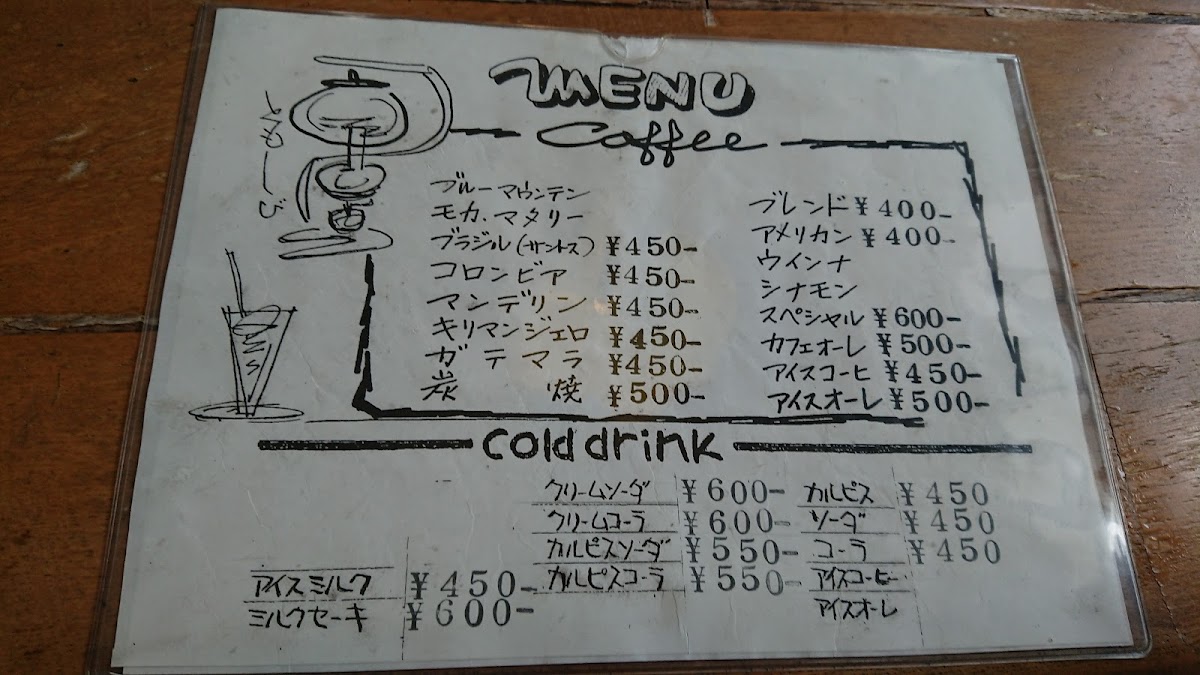 MENU
Coffee
こーひー
ブルーマウンテン
モカ.マタリー
ブラジル(サントス) ¥450-
コロンビア ¥450-
マンデリン ¥450-
キリマンジェロ ¥450-
ガテマラ ¥450-
炭焼 ¥500-
ブレンド ¥400-
アメリカン ¥400-
ウインナ
シナモン
スペシャル ¥600-
カフェオーレ ¥500-
アイスコーヒ ¥450-
アイスオーレ ¥500-
cold drink
アイスミルク ¥450-
ミルクセーキ ¥600-
クリームソーダ ¥600-
クリームコーラ ¥600-
カルピスソーダ ¥550-
カルピスコーラ ¥550-
カルピス ¥450
ソーダ ¥450
コーラ ¥450
アイスコーヒー
アイスオーレ